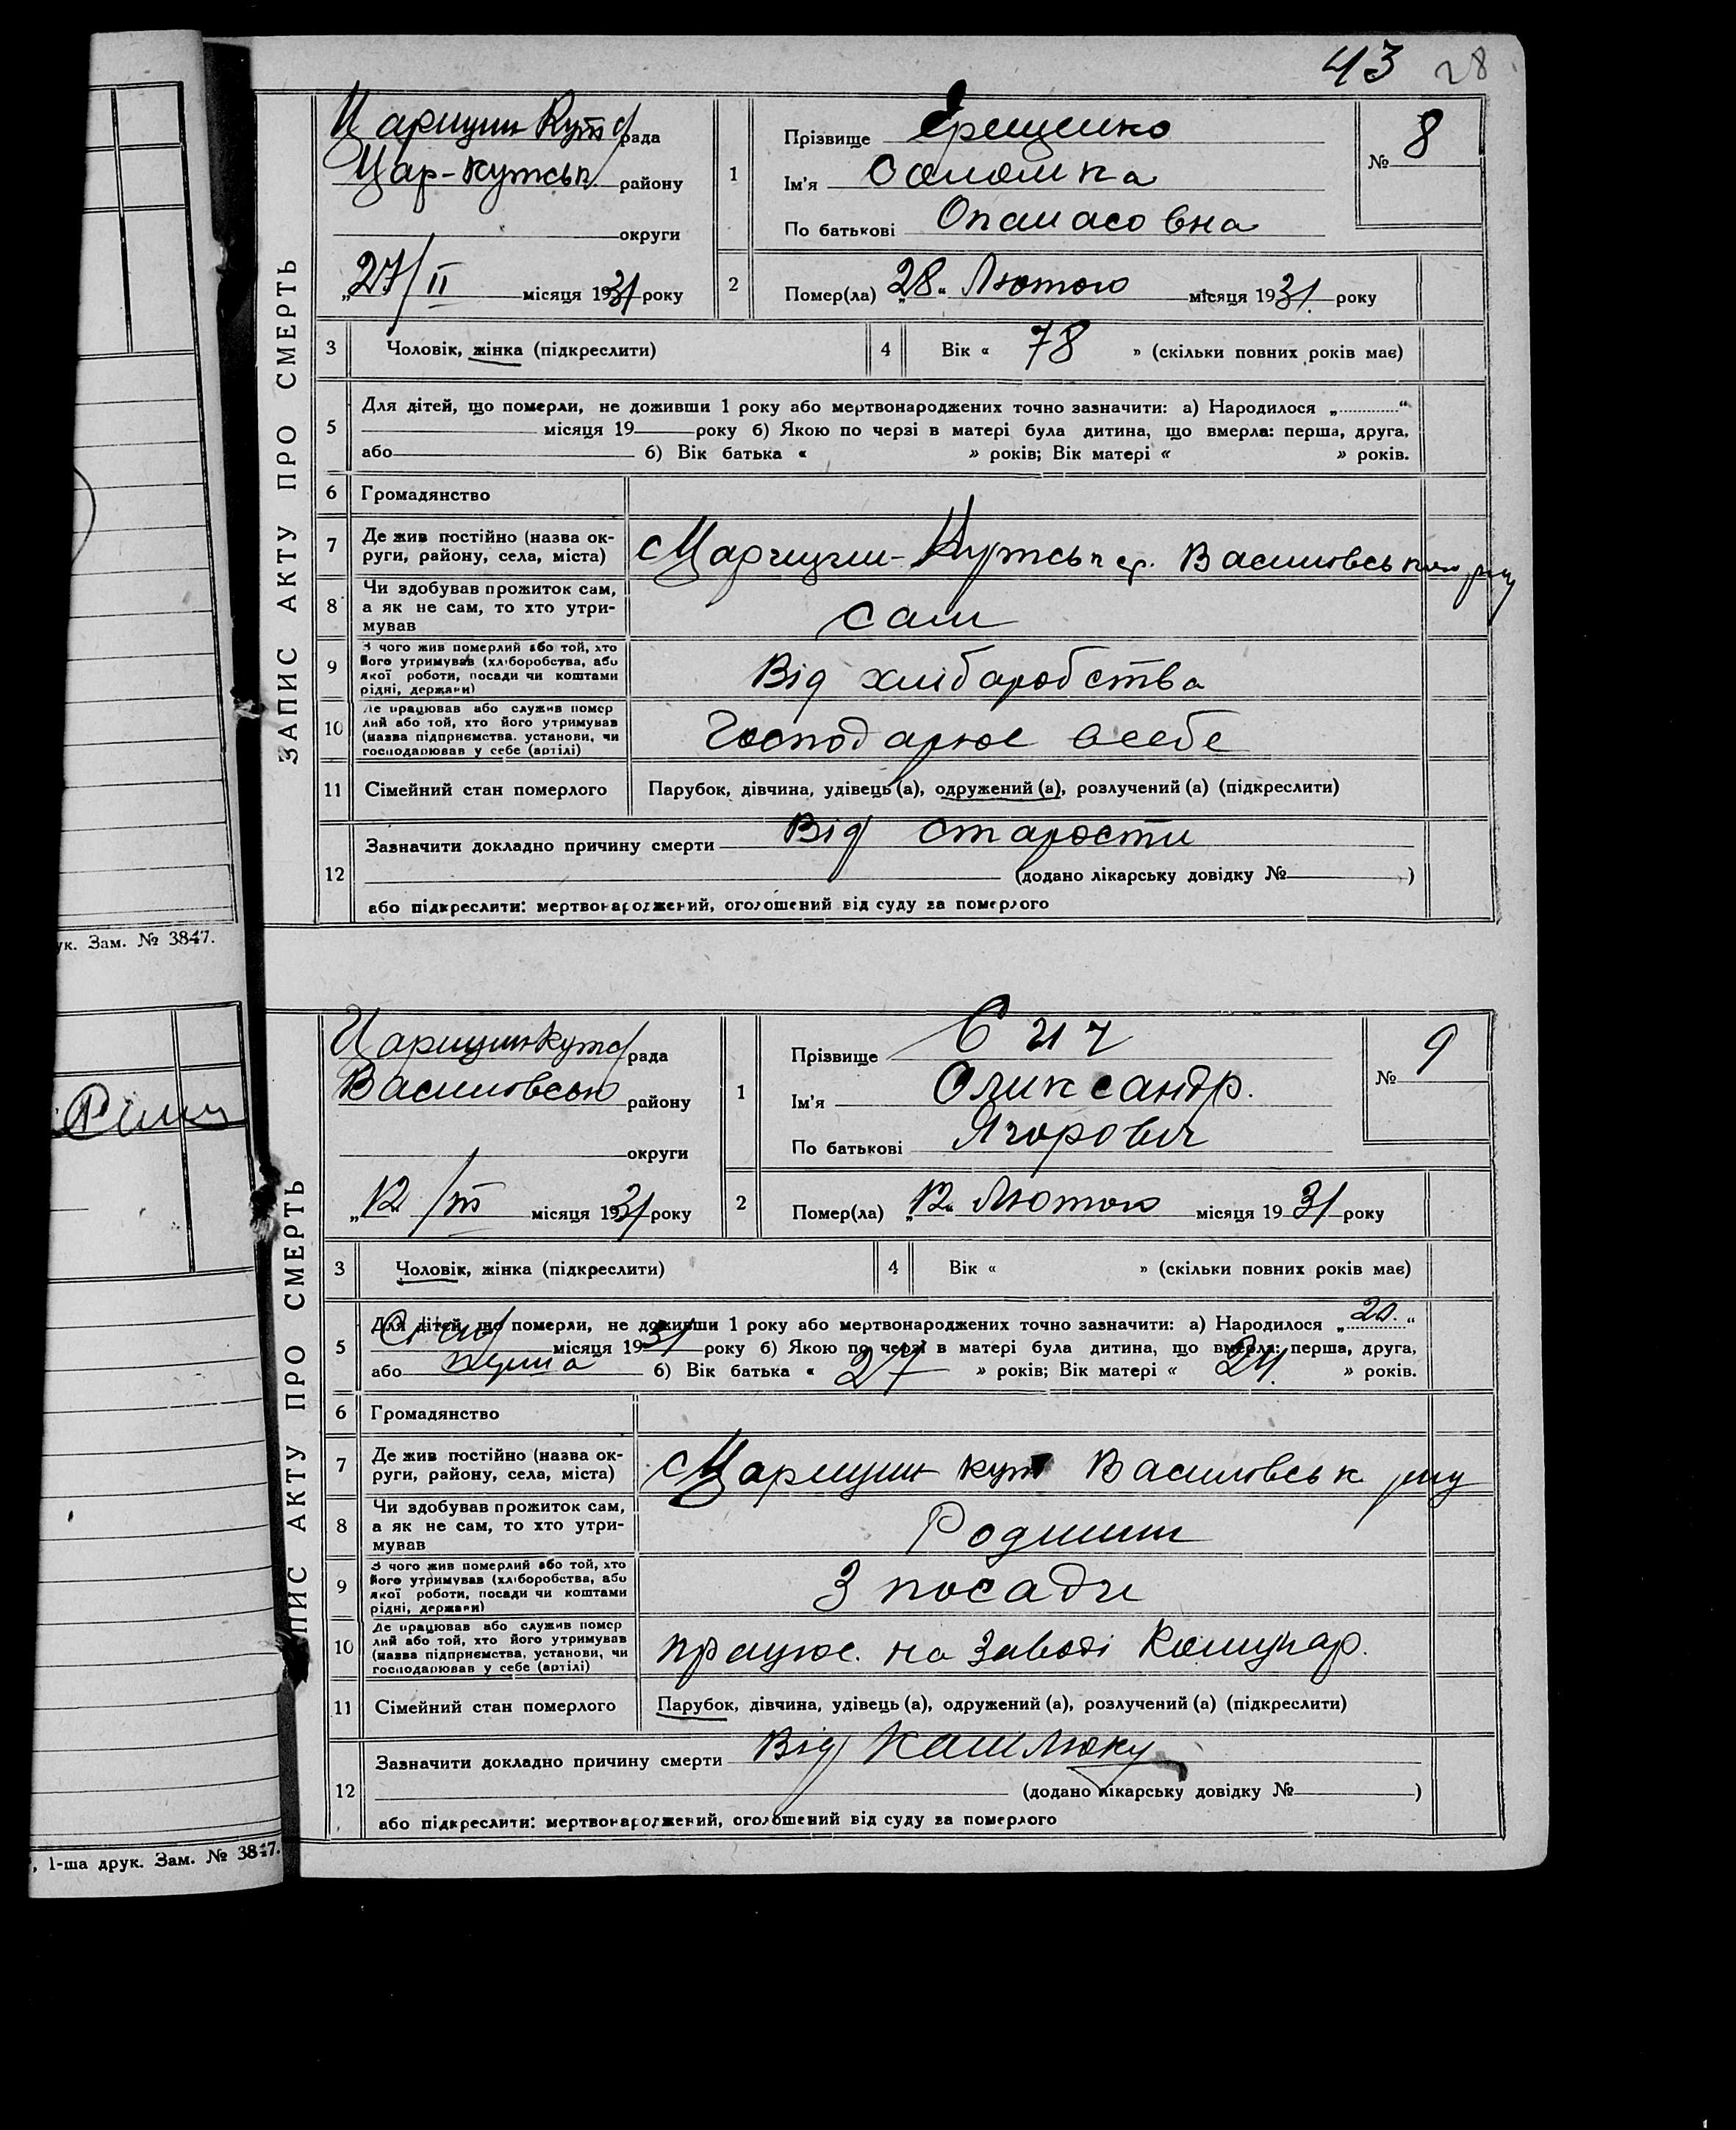 43 28
Царицин Кут с/рада
Цар-Кутськ. району
округи
„27/II місяця 1931 року
ЗАПИС АКТУ ПРО СМЕРТЬ
1
Прізвище Єрещенко
Ім'я Соломка
По батькові Опанасовна
№ 8
2 Помер(ла) „28„ Лютого місяця 1931. року
3 Чоловік, жінка (підкреслити)
4 Вік « 78 » (скільки повних років має)
5 Для дітей, що померли, не доживши 1 року або мертвонароджених точно зазначити: а) Народилося „............“
місяця 19 року б) Якою по черзі в матері була дитина, що вмерла: перша, друга,
або б) Вік батька « » років; Вік матері « » років.
6 Громадянство
7 Де жив постійно (назва ок-
руги, району, села, міста) с Царицин-Кутськ ср. Василівського р-ну
8 Чи здобував прожиток сам,
а як не сам, то хто утри-
мував
сам
9 З чого жив померлий або той, хто
його утримував (хліборобства, або
якої роботи, посади чи коштами
рідні, держави)
Від хлібаробства
10 Де працював або служив помер
лий або той, хто його утримував
(назва підприємства, установи, чи
господарював у себе (артілі)
Господарює всебе
11 Сімейний стан померлого Парубок, дівчина, удівець (а), одружений (а), розлучений (а) (підкреслити)
12 Зазначити докладно причину смерти Від старости
(додано лікарську довідку № )
або підкреслити: мертвонароджений, оголошений від суду за померлого
ук. Зам. № 3847.
Царицин Кут с/рада
Василівсью району
округи
„12/III місяця 1931 року
ПИС АКТУ ПРО СМЕРТЬ
1
Прізвище Сич
Ім'я Олександр.
По батькові Ягорович
№ 9
2 Помер(ла) „12„ Лютого місяця 1931 року
3 Чоловік, жінка (підкреслити)
4 Вік « » (скільки повних років має)
5 Для дітей, що померли, не доживши 1 року або мертвонароджених точно зазначити: а) Народилося „20.“
місяця 1931 року б) Якою по черзі в матері була дитина, що вмерла: перша, друга,
або перша б) Вік батька « 27 » років; Вік матері « 24. » років.
6 Громадянство
7 Де жив постійно (назва ок-
руги, району, села, міста) с Царицин кут Василівськ р-ну
8 Чи здобував прожиток сам,
а як не сам, то хто утри-
мував
Родини
9 З чого жив померлий або той, хто
його утримував (хліборобства, або
якої роботи, посади чи коштами
рідні, держави)
З посади
10 Де працював або служив помер
лий або той, хто його утримував
(назва підприємства, установи, чи
господарював у себе (артілі)
працює. на Заводі Комунар.
11 Сімейний стан померлого Парубок, дівчина, удівець (а), одружений (а), розлучений (а) (підкреслити)
12 Зазначити докладно причину смерти Від Кашлюку
(додано лікарську довідку № )
або підкреслити: мертвонароджений, оголошений від суду за померлого
, 1-ша друк. Зам. № 3847.